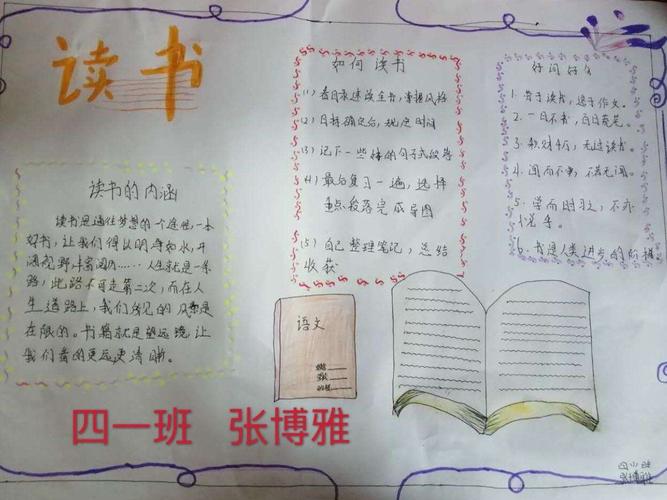 读书
读书的内涵
读书是通往梦想的一个途径,一本
好书,让我们得以明事如水,开
阔视野,丰富阅历……人生就是一条
路,此路不可走第二次,而在人
生道路上,我们所见的风景是
有限的。书籍就是望远镜,让
我们看的更远更清晰。
如何读书
(1)看目录速读全书,掌握风格
(2)目标确定后,规定时间
(3)记下一些好的句子或段落
(4)最后复习一遍,选择
重点段落完成导图
(5)自己整理笔记,总结
收获
1.善于读书,追于作文。
2.一日不书,百日荒芜。
3.积财千万,无过读书。
4.闻而不审,不若无闻。
5.学而时习之,不亦
说乎。
6.书是人类进步的阶梯
语文
姓名
班级
四一班 张博雅
四一班
张博雅